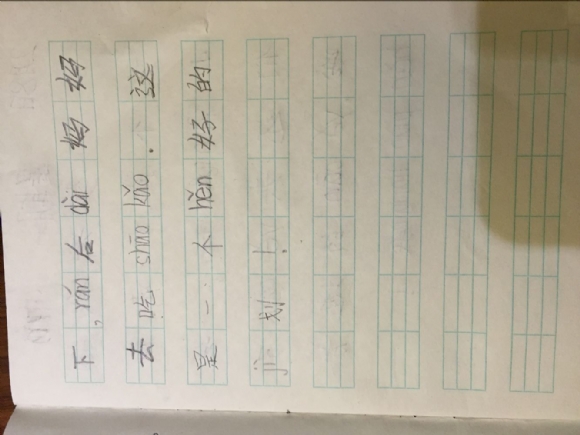 下，rán后dài妈妈
去吃shāo kǎo。这
是一个hěn好的
jì划！